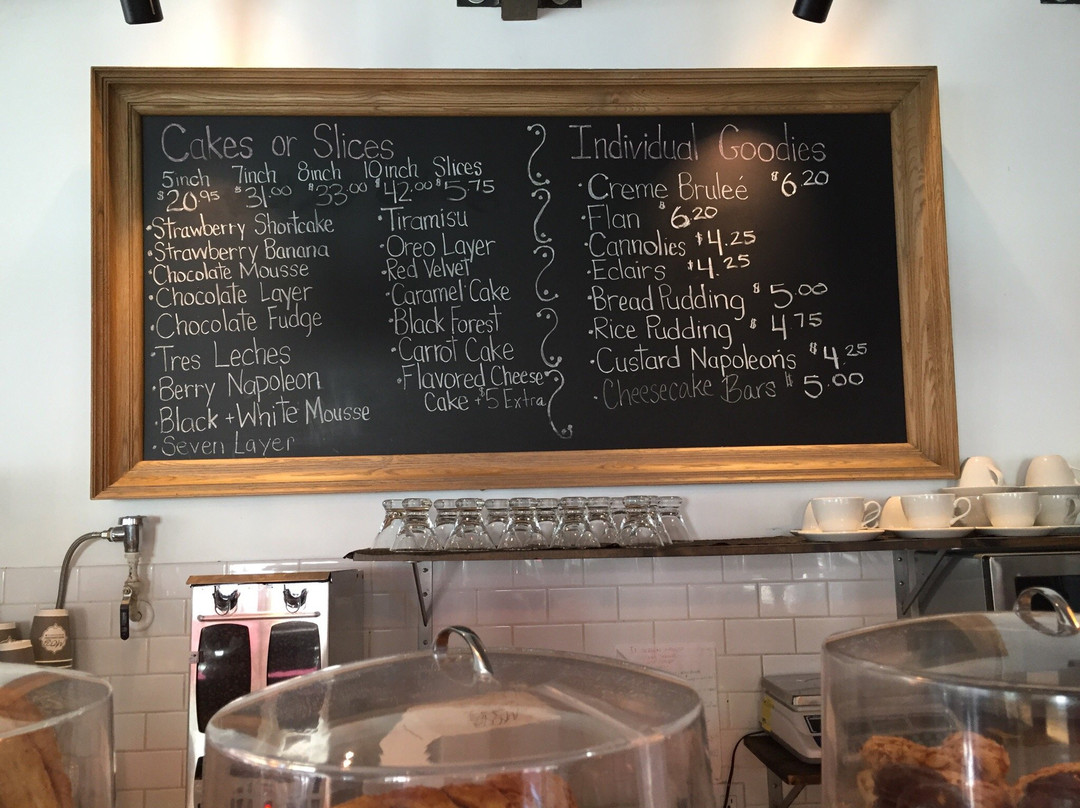 Cakes or Slices
5inch 7inch 8inch 10inch Slices
$20.95 $31.00 $33.00 $42.00 $5.75
•Strawberry Shortcake
•Strawberry Banana
•Chocolate Mousse
•Chocolate Layer
•Chocolate Fudge
•Tres Leches
•Berry Napoleon
•Black + White Mousse
•Seven Layer
•Tiramisu
•Oreo Layer
•Red Velvet
•Caramel Cake
•Black Forest
•Carrot Cake
•Flavored Cheese
Cake +$5 Extra
Individual Goodies
•Creme Bruleé $6.20
•Flan $6.20
•Cannolies $4.25
•Eclairs $4.25
•Bread Pudding $5.00
•Rice Pudding $4.75
•Custard Napoleons $4.25
•Cheesecake Bars $5.00